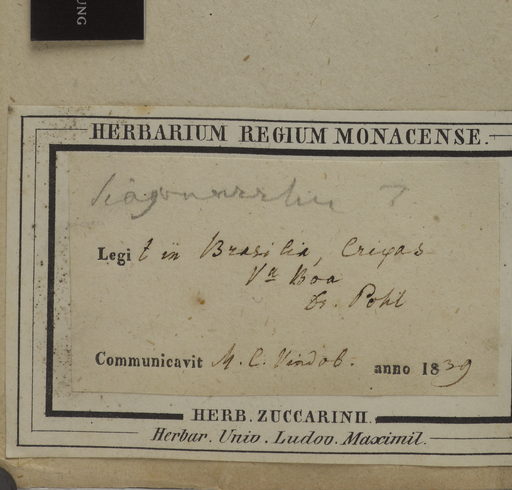 UNG
HERBARIUM REGIUM MONACENSE.
Legit in Brasilia, Cregas
Va Boa
Dr. Pohl
Communicavit M. C. Vindob. anno 1839
HERB. ZUCCARINII.
Herbar. Univ. Ludov. Maximil.